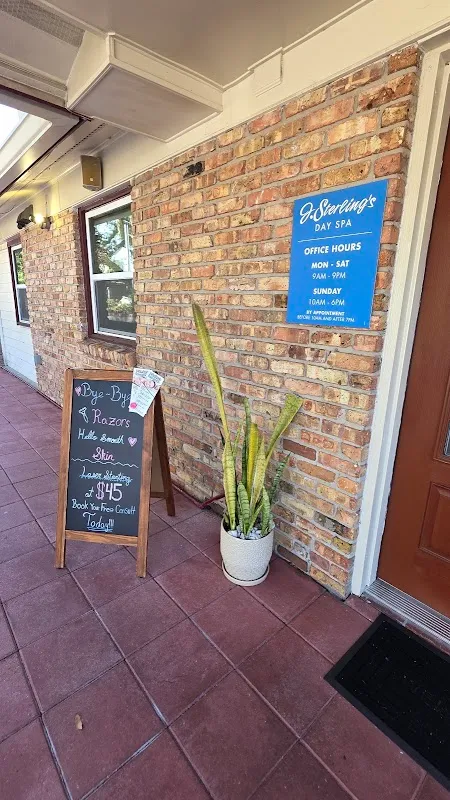 J.Sterling's
DAY SPA
OFFICE HOURS
MON - SAT
9AM - 9PM
SUNDAY
10AM - 6PM
BY APPOINTMENT
BEFORE 10AM AND AFTER 7PM
Bye-Bye
Razors
Hello Smooth
Skin
Laser Starting
at $45
Book You Free Consult
Today!!!